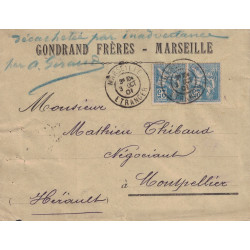 Décacheté par inadvertance
par A. Giraud
GONDRAND FRÈRES - MARSEILLE
MARSEILLE
ETRANGER
Monsieur
Mathieu Thibaud
Négociant
à Montpellier
(Hérault)